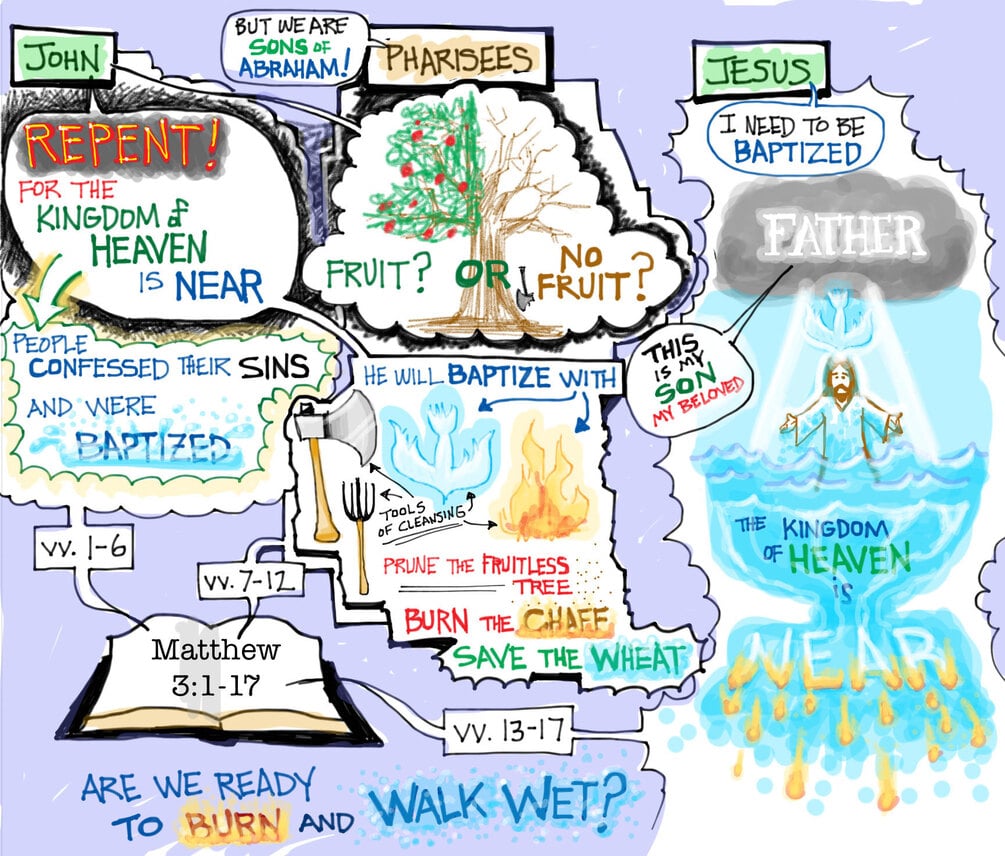 JOHN
REPENT!
FOR THE
KINGDOM of
HEAVEN
IS NEAR
PEOPLE
CONFESSED THEIR SINS
AND WERE
BAPTIZED
vv. 1-6
BUT WE ARE
SONS OF
ABRAHAM!
PHARISEES
FRUIT? OR NO
FRUIT?
HE WILL BAPTIZE WITH
TOOLS
OF CLEANSING
PRUNE THE FRUITLESS
TREE
BURN THE CHAFF
SAVE THE WHEAT
vv. 7-12
Matthew
3:1-17
vv. 13-17
JESUS
I NEED TO BE
BAPTIZED
FATHER
THIS
IS MY
SON
MY BELOVED
THE KINGDOM
OF HEAVEN
is
NEAR
ARE WE READY
TO BURN AND WALK WET?